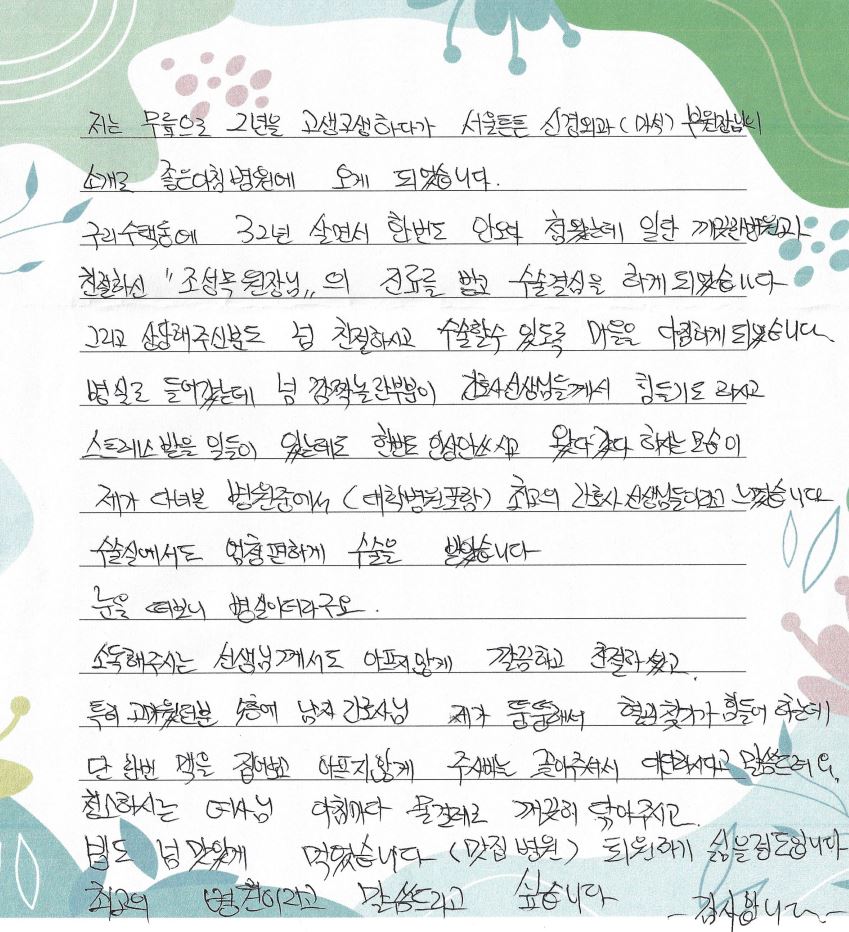 저는 무릎으로 2년을 고생고생하다가 서울튼튼 신경외과(마석) 부원장님이
소개로 좋은아침병원에 오게 되었습니다.
구리수택동에 32년 살면서 한번도 안오다 첨왔는데 일단 깨끗한병원과
친절하신 "조성목원장님" 의 진료를 받고 수술결심을 하게되었습니다
그리고 상담해주신분도 넘 친절하시고 수술할수 있도록 마음을 다짐하게 되었습니다.
병실로 들어갔는데 넘 깜짝놀란부분이 간호사선생님들께서 힘들기도 하시고
스트레스 받을 일들이 있는데도 한번도 인상안쓰시고 왔다갔다 하시는 모습이
제가 다녀본 병원중에서 (대학병원포함) 최고의 간호사 선생님들이라고 느꼈습니다
수술실에서도 엄청편하게 수술을 받았습니다
눈을 떠보니 병실이더라구요.
소독해주시는 선생님께서도 아프지않게 깔끔하고 친절하셨고.
특히 고마웠던분 5층에 남자간호사님 제가 뚱뚱해서 혈관찾기가 힘들어 하는데
단 한번 맥을 집어보고 아프지않게 주사바늘 꽂아주셔서 대단하시다고 말씀드려요.
청소하시는 여사님 아침마다 물걸레로 깨끗히 닦아주시고.
밥도 넘 맛있게 먹었습니다 (맛집병원) 퇴원하기 싫을정도입니다
최고의 병원이라고 말씀드리고 싶습니다 -감사합니다.-